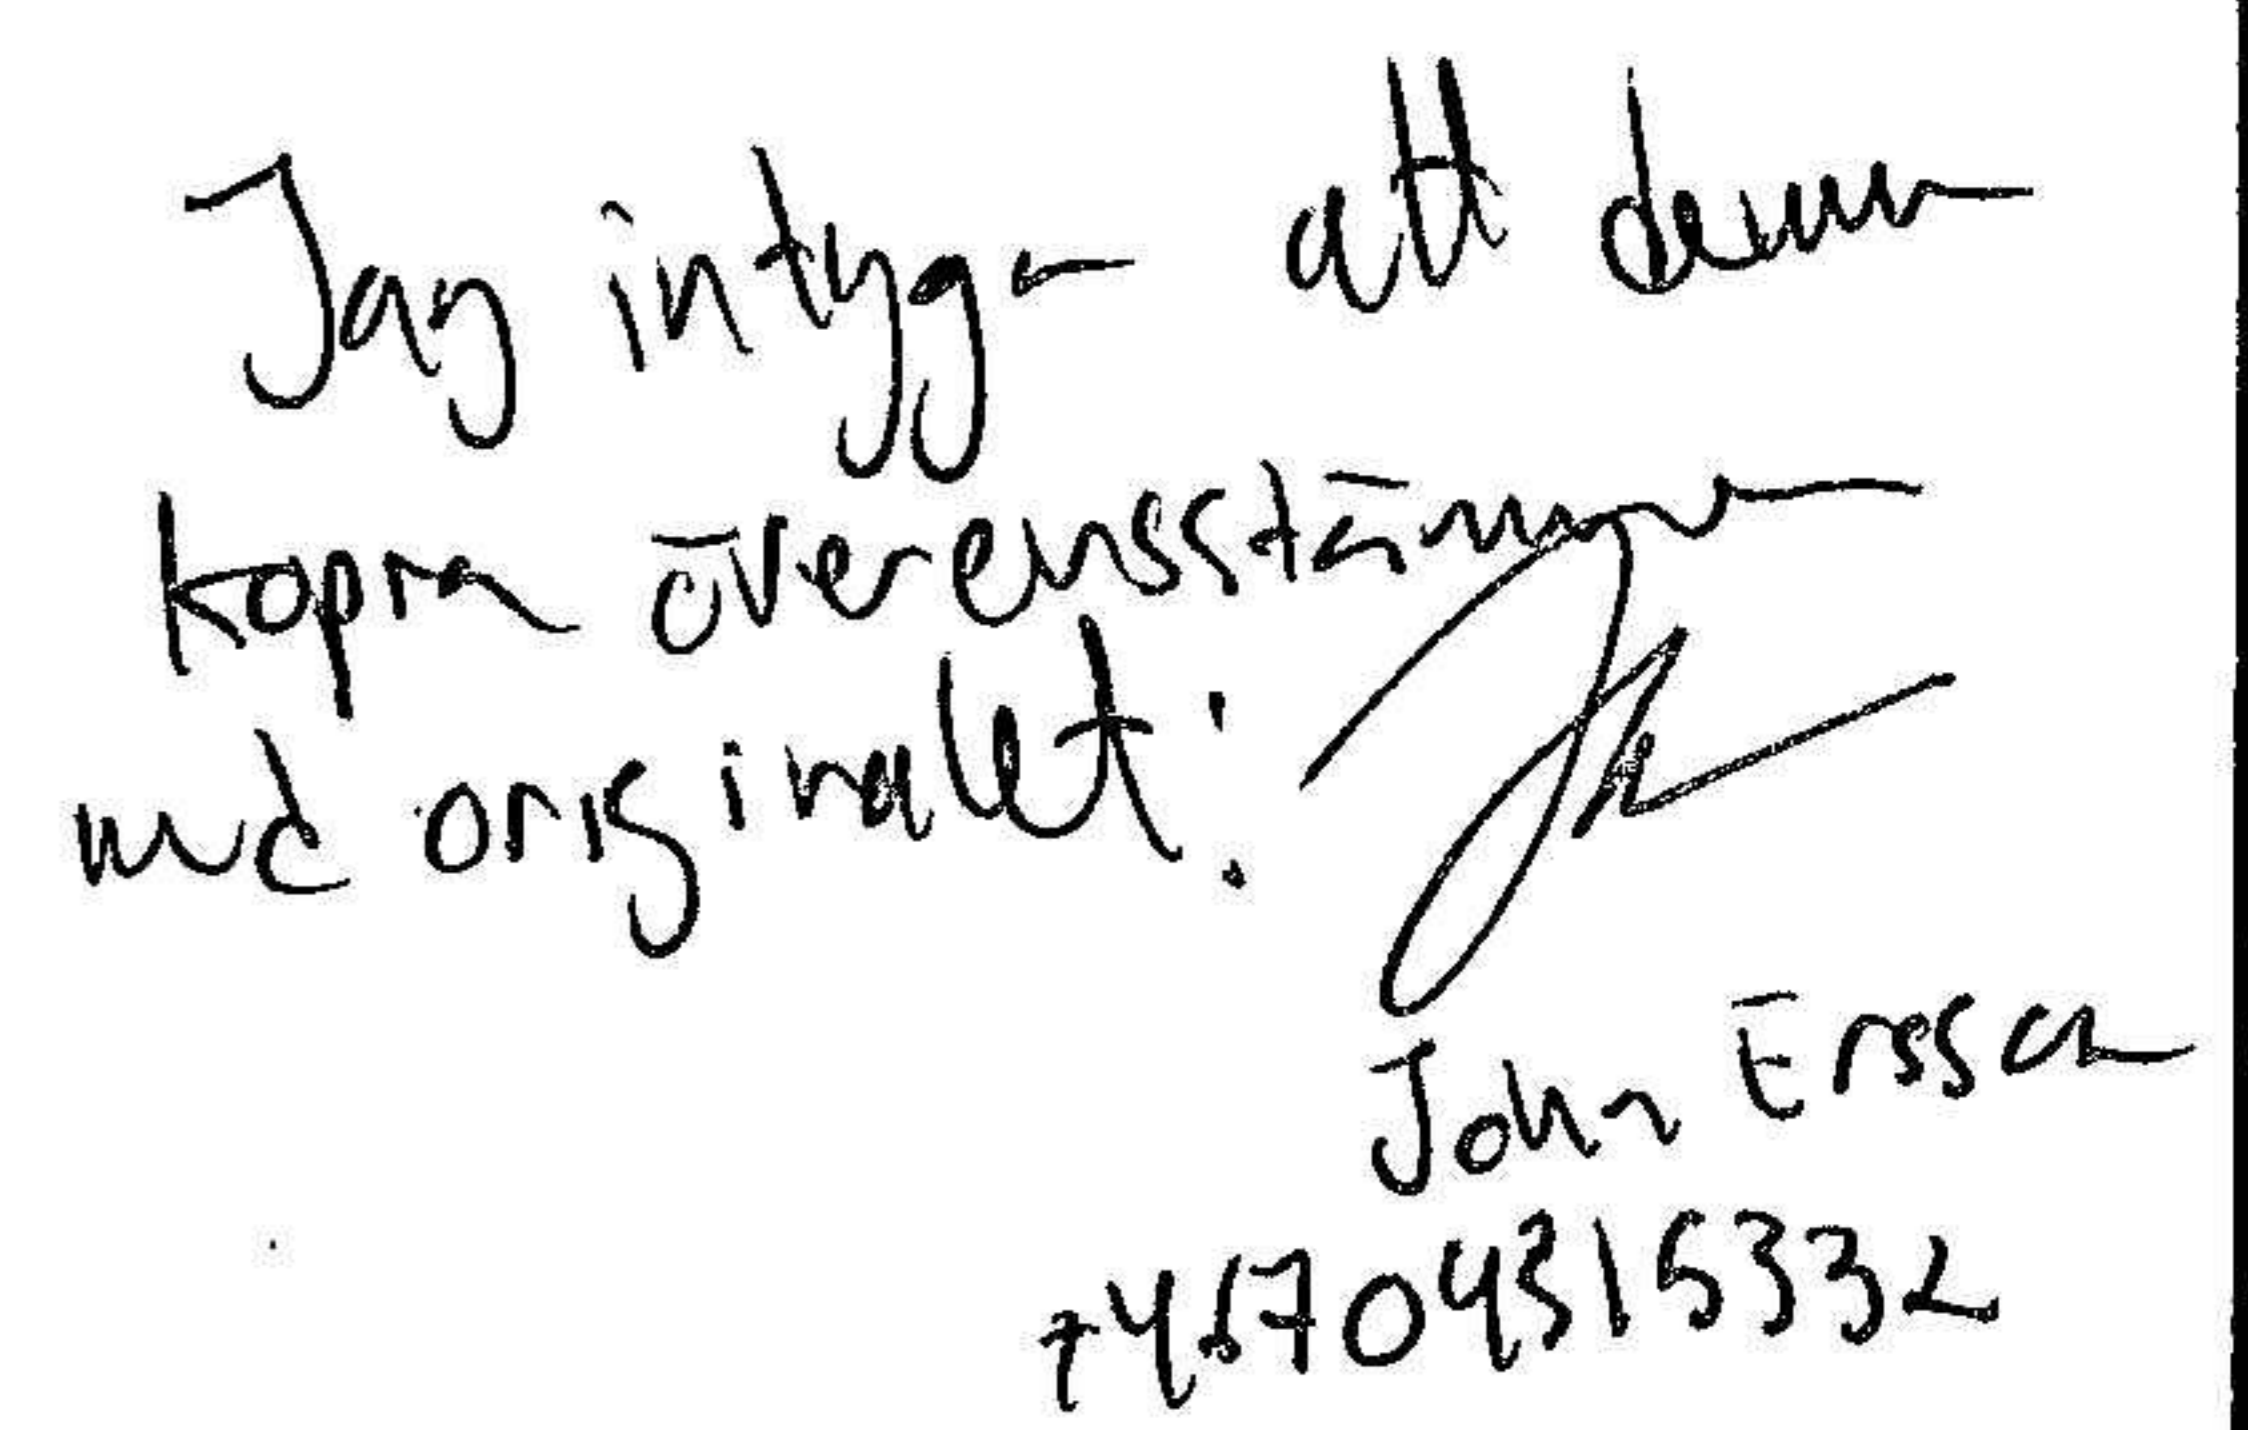 Jag intygar att denna
kopia överensstämmer
med originalet:
John Ersson
+46704315332